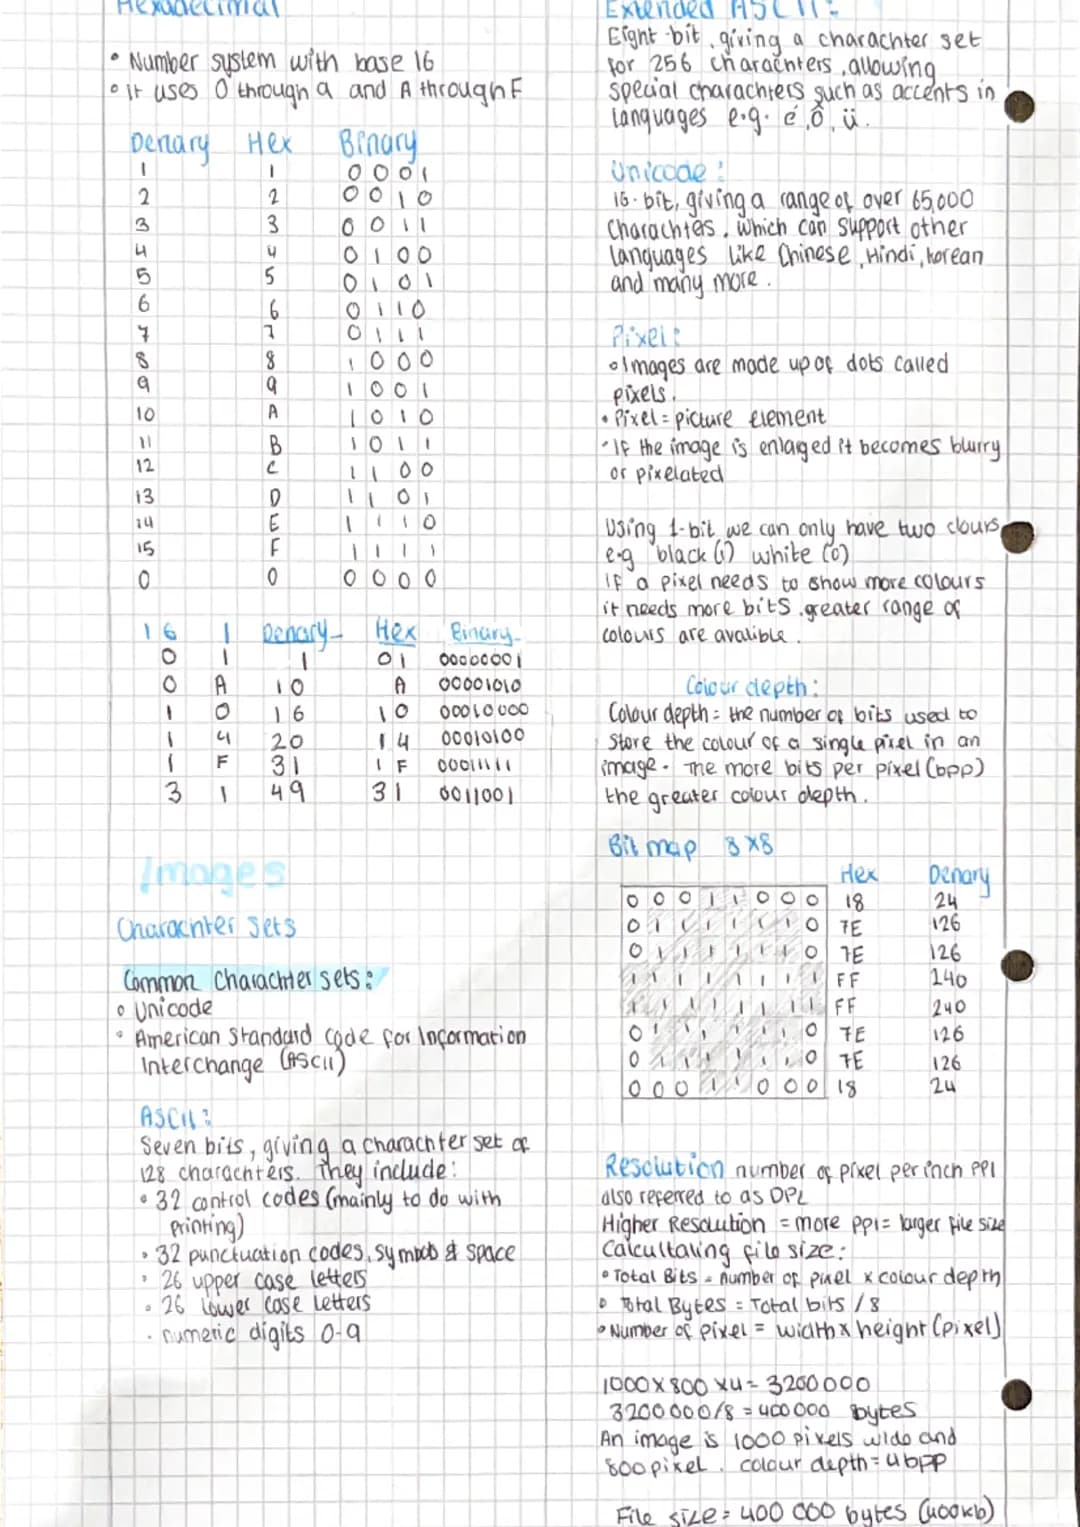 Hexadecimal
• Number system with base 16
• it uses 0 through 9 and A through F
Denary Hex Binary
1 1 0001
2 2 0010
3 3 0011
4 4 0100
5 5 0101
6 6 0110
7 7 0111
8 8 1000
9 9 1001
10 A 1010
11 B 1011
12 C 1100
13 D 1101
14 E 1110
15 F 1111
0 0 0000
16 1 Denary Hex Binary
0 1 1 01 00000001
0 A 10 A 00001010
1 0 16 10 00010000
1 4 20 14 00010100
1 F 31 1F 00011111
3 1 49 31 0011001
Images
Charachter Sets
Common Charachter sets:
• Unicode
• American Standard Code for Information
Interchange (ASCII)
ASCII:
Seven bits, giving a charachter set of
128 charachters. They include:
• 32 control codes (mainly to do with
printing)
• 32 punctuation codes, symbols & space
• 26 upper case letters
• 26 lower case letters
• numeric digits 0-9
Extended ASCII:
Eight-bit, giving a charachter set
for 256 charachters, allowing
special charachters such as accents in
languages e.g. é, ô, ü.
Unicode:
16-bit, giving a range of over 65,000
Charachters, which can support other
languages like Chinese, Hindi, korean
and many more.
Pixel:
• Images are made up of dots called
pixels.
• Pixel = picture element
• If the image is enlarged it becomes blurry
or pixelated
Using 1-bit we can only have two clours
e.g black (1) white (0)
If a pixel needs to show more colours
it needs more bits. greater range of
colours are avalible.
Colour depth:
Colour depth = the number of bits used to
store the colour of a single pixel in an
image. The more bits per pixel (bpp)
the greater colour depth.
Bit map 8x8
Hex Denary
0 0 0 1 1 0 0 0 18 24
0 1 1 1 1 1 1 0 7E 126
0 1 1 1 1 1 1 0 7E 126
1 1 1 1 1 1 1 1 FF 240
1 1 1 1 1 1 1 1 FF 240
0 1 1 1 1 1 1 0 7E 126
0 1 1 1 1 1 1 0 7E 126
0 0 0 1 1 0 0 0 18 24
Resolution number of pixel per inch PPI
also referred to as DPL
Higher Resolution = more ppi = larger file size
Calcultaling file size:
• Total Bits = number of pixel x colour depth
• Total Bytes = Total bits / 8
• Number of pixel = width x height (pixel)
1000 x 800 x 4 = 3200000
3200000/8 = 400000 bytes
An image is 1000 pixels wide and
800 pixel. colour depth = 4bpp
File size = 400 000 bytes (400kb)